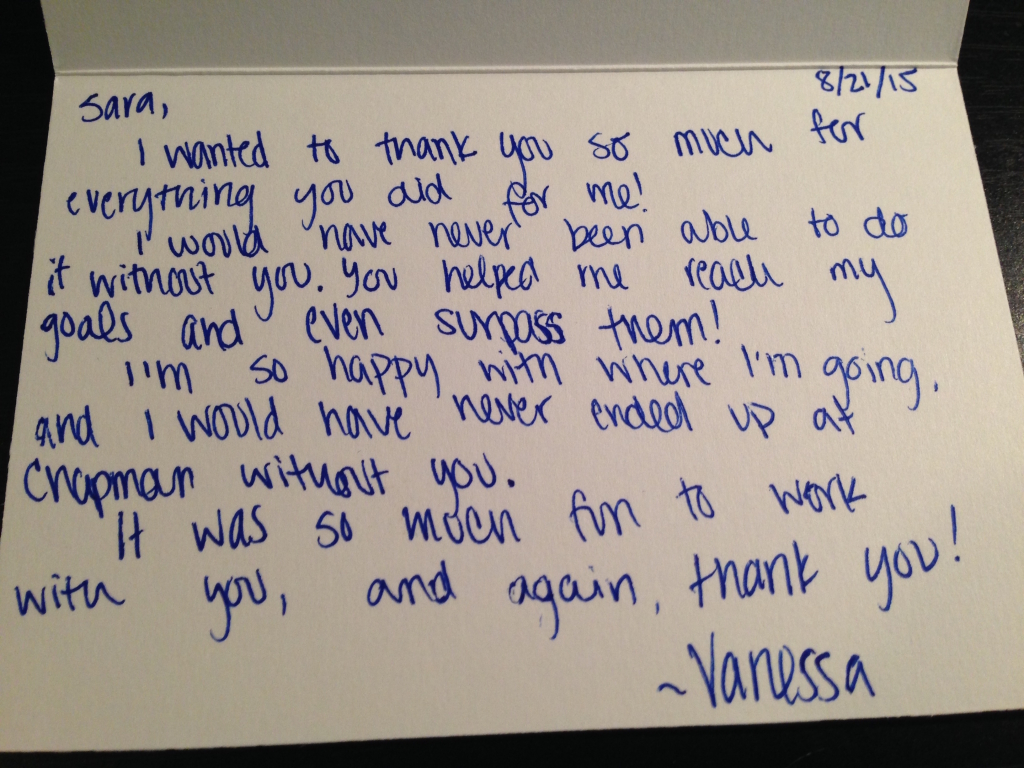 8/21/15
Sara,
I wanted to thank you so much for
everything you did for me!
I would have never been able to do
it without you. You helped me reach my
goals and even surpass them!
I'm so happy with where I'm going,
and I would have never ended up at
Chapman without you.
It was so much fun to work
with you, and again, thank you!
~Vanessa